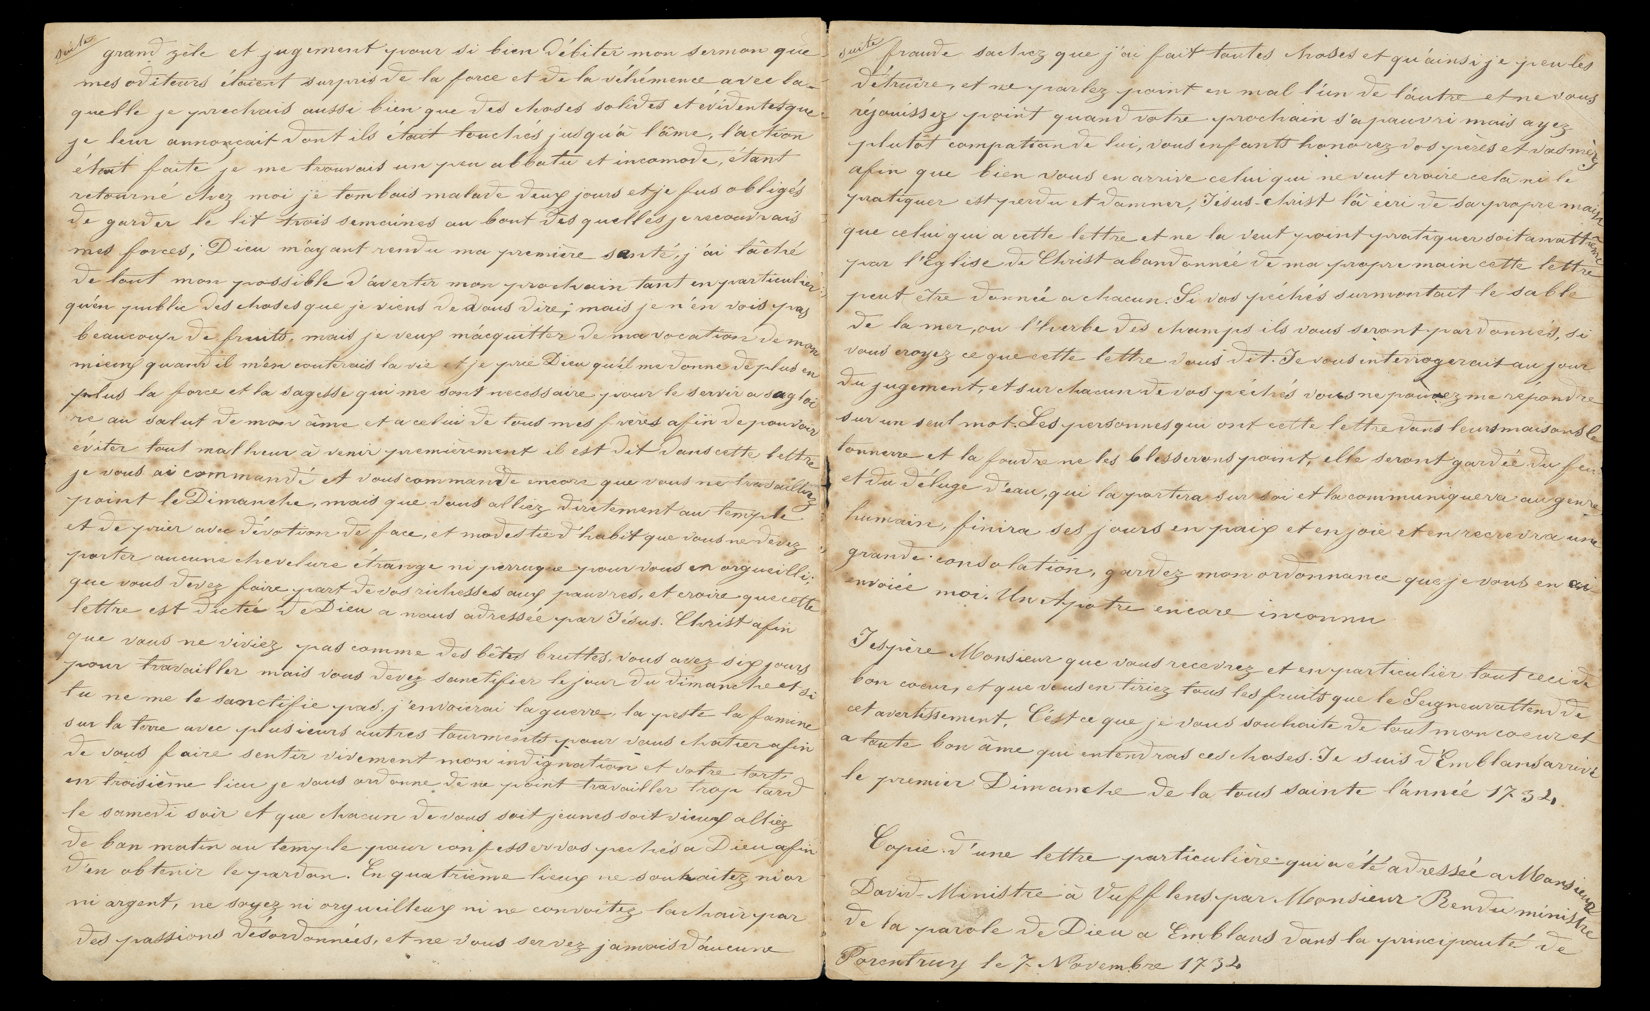 suite
grand zèle et jugement pour si bien débiter mon sermon que
mes oditeurs étoient surpris de la force et de la véhémence avec la-
quelle je prechais aussi bien que des choses solides et évidentes que
je leur annonçait dont ils étoit touchés jusqu'à l'âme, l'action
étoit faite je me trouvais un peu abbatu et incomode, étant
retourné chez moi je tombais malade deux jours et je fus obligés
de garder le lit trois semaines au bout des quelles je recouvrais
mes forces; Dieu m'ayant rendu ma première santé, j'ai tâché
de tout mon possible d'avertir mon prochain tant en particulier
qu'en public des choses que je viens de vous dire; mais je n'én vois pas
beaucoup de fruits, mais je veux m'acquitter de ma vocation de mon
mieux quand il m'én couterais la vie et je prie Dieu qu'il me donne de plus en
plus la force et la sagesse qui me sont necessaire pour le servir a sa gloi
re au salut de mon âme et a celui de tous mes frères afin de pouvoir
éviter tout malheur à venir premièrement il est dit dans cette lettre
je vous ai commandé et vous commande encore que vous ne travailliez
point le Dimanche, mais que vous alliez diretement au temple
et de prier avec dévotion de face, et modestie d'habit que vous ne devez
porter aucune chevelure étrange ni perruque pour vous en orgueilli;
que vous devez faire part de vos richesses aux pauvres, et croire que cette
lettre est dictée de Dieu a nous adressée par Jésus. Christ afin
que vous ne viviez pas comme des bêtes bruttes, vous avez six jours
pour travailler mais vous devez sanctifier le jour du dimanche et si
tu ne me le sanctifie pas, j'envoierai la guerre, la peste la famine
sur la terre avec plusieurs autres tourments pour vous chatier afin
de vous faire sentir vivement mon indignation et votre tort,
en troisième lieu je vous ordonne de ne point travailler trop tard
le samedi soir et que chacun de vous soit jeunes soit vieux alliez
de bon matin au temple pour confesser vos pechés a Dieu afin
d'en obtenir le pardon. En quatrieme lieux ne souhaitez ni or
ni argent, ne soyez ni orgueilleux ni ne convoitez la chair par
des passions désordonnées, et ne vous servez jamais d'aucune
suite
fraude sachez que j'ai fait toutes choses et qu'ainsi je peu les
détruire, et ne parlez point en mal l'un de l'autre et ne vous
réjouissez point quand votre prochain s'apauvri mais ayez
plutôt compation de lui, vous enfants honorez vos pères et vos mères
afin que bien vous en arrive celui qui ne veut croire cela ni le
pratiquer est perdu et damner, Jésus-Christ l'â écri de sa propre main
que celui qui a cette lettre et ne la veut point pratiquer soit anathême
par l'Eglise de Christ abandonnée de ma propre main cette lettre
peut être donnée a chacun. Si vos péchés surmontait le sable
de la mer, ou l'herbe des champs ils vous seront pardonnés, si
vous croyez ce que cette lettre vous dit. Je vous interrogerait au jour
du jugement, et sur chacun de vos péchés vous ne pouvez me répondre
sur un seul mot. Les personnes qui ont cette lettre dans leurs maisons le
tonnerre et la foudre ne les blesserons point, elle seront gardée du feu
et du déluge d'eau, qui la portera sur soi et la communiquera au genre
humain, finira ses jours en paix et en joie et en recrevra une
grande consolation, gardez mon ordonnance que je vous en ai
envoiée moi. Un Apotre encore inconnu
J'espère Monsieur que vous recevrez et en particulier tout ceci de
bon coeur, et que vous en tiriez tous les fruits que le Seigneur attend de
cet avertissement, C'est ce que je vous souhaite de tout mon coeur et
a toute bon âme qui entendras ces choses. Je suis d'Emblans arrivé
le premier Dimanche de la tous sainte l'année 1732.
Copie d'une lettre particulière qui a été adressée a Monsieur
David-Ministre à Vufflens par Monsieur Rendu ministre
de la parole de Dieu a Emblans dans la principauté de
Porentruy le 7 Novembre 1732